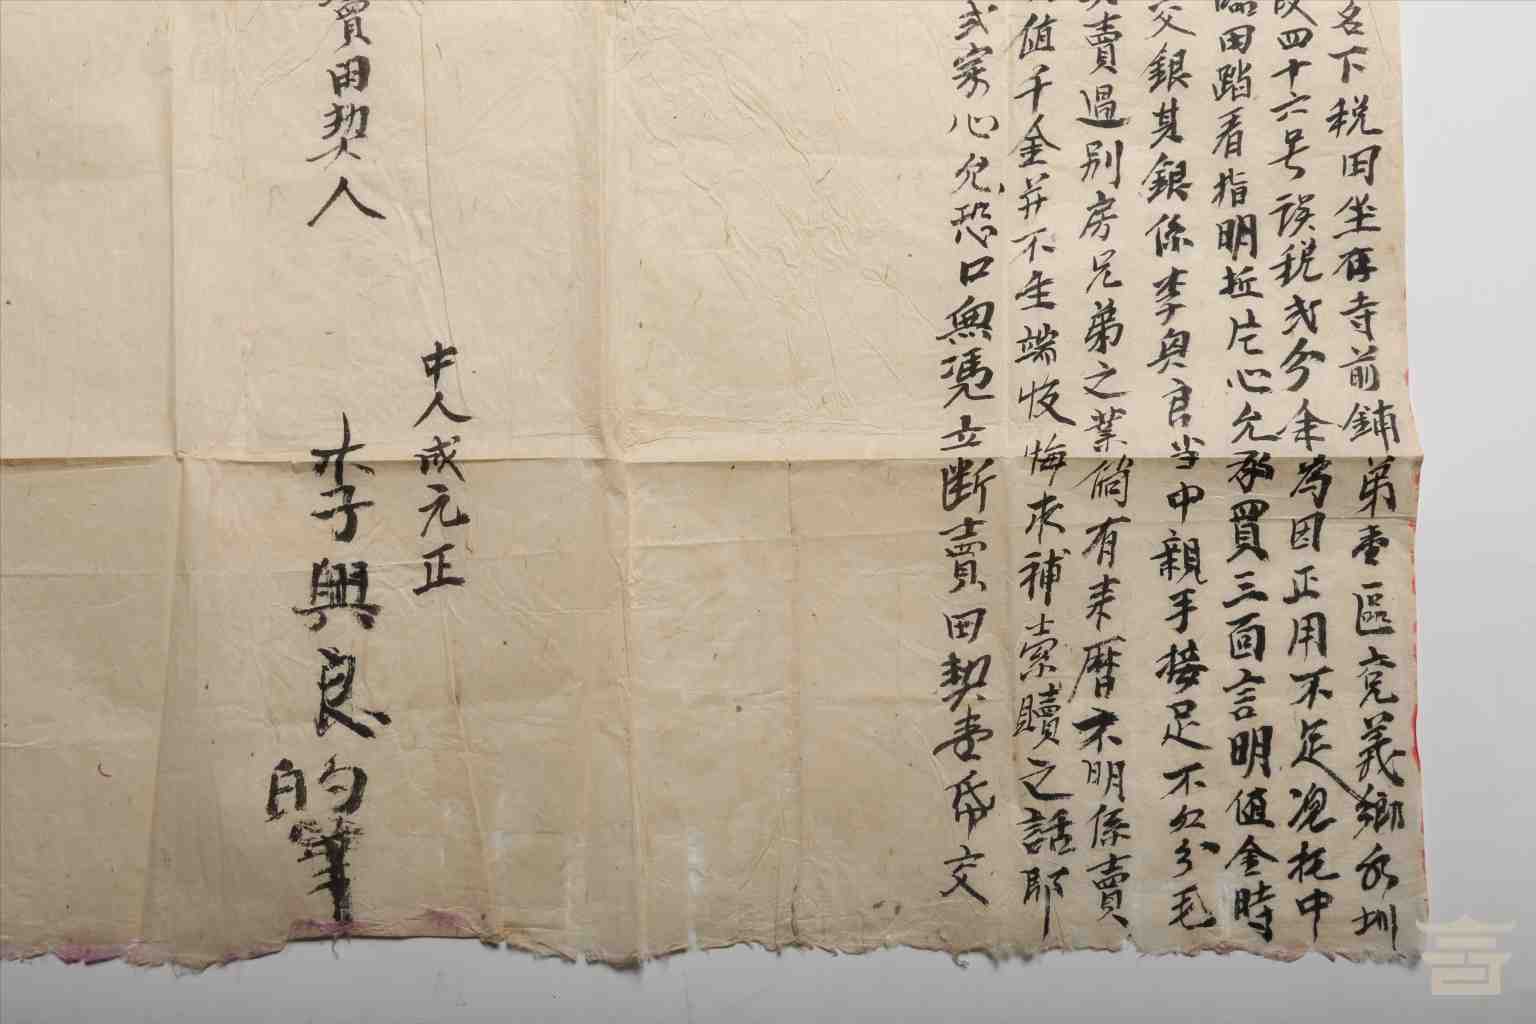 名下税田坐存寺前鋪弟壹區克義鄉永圳
四十六号該税弍分余為因正用不足浼托中
臨田踏看指明坵片心允承買三面言明值金時
交銀其銀係李興良当中親手接足不欠分毛
賣過别房兄弟之業倘有来歷不明係賣
值千金并不生端反悔求補索贖之話即
弍家心允恐口無憑立断賣田契壹帋交
中人成元正
賣田契人 李興良的筆